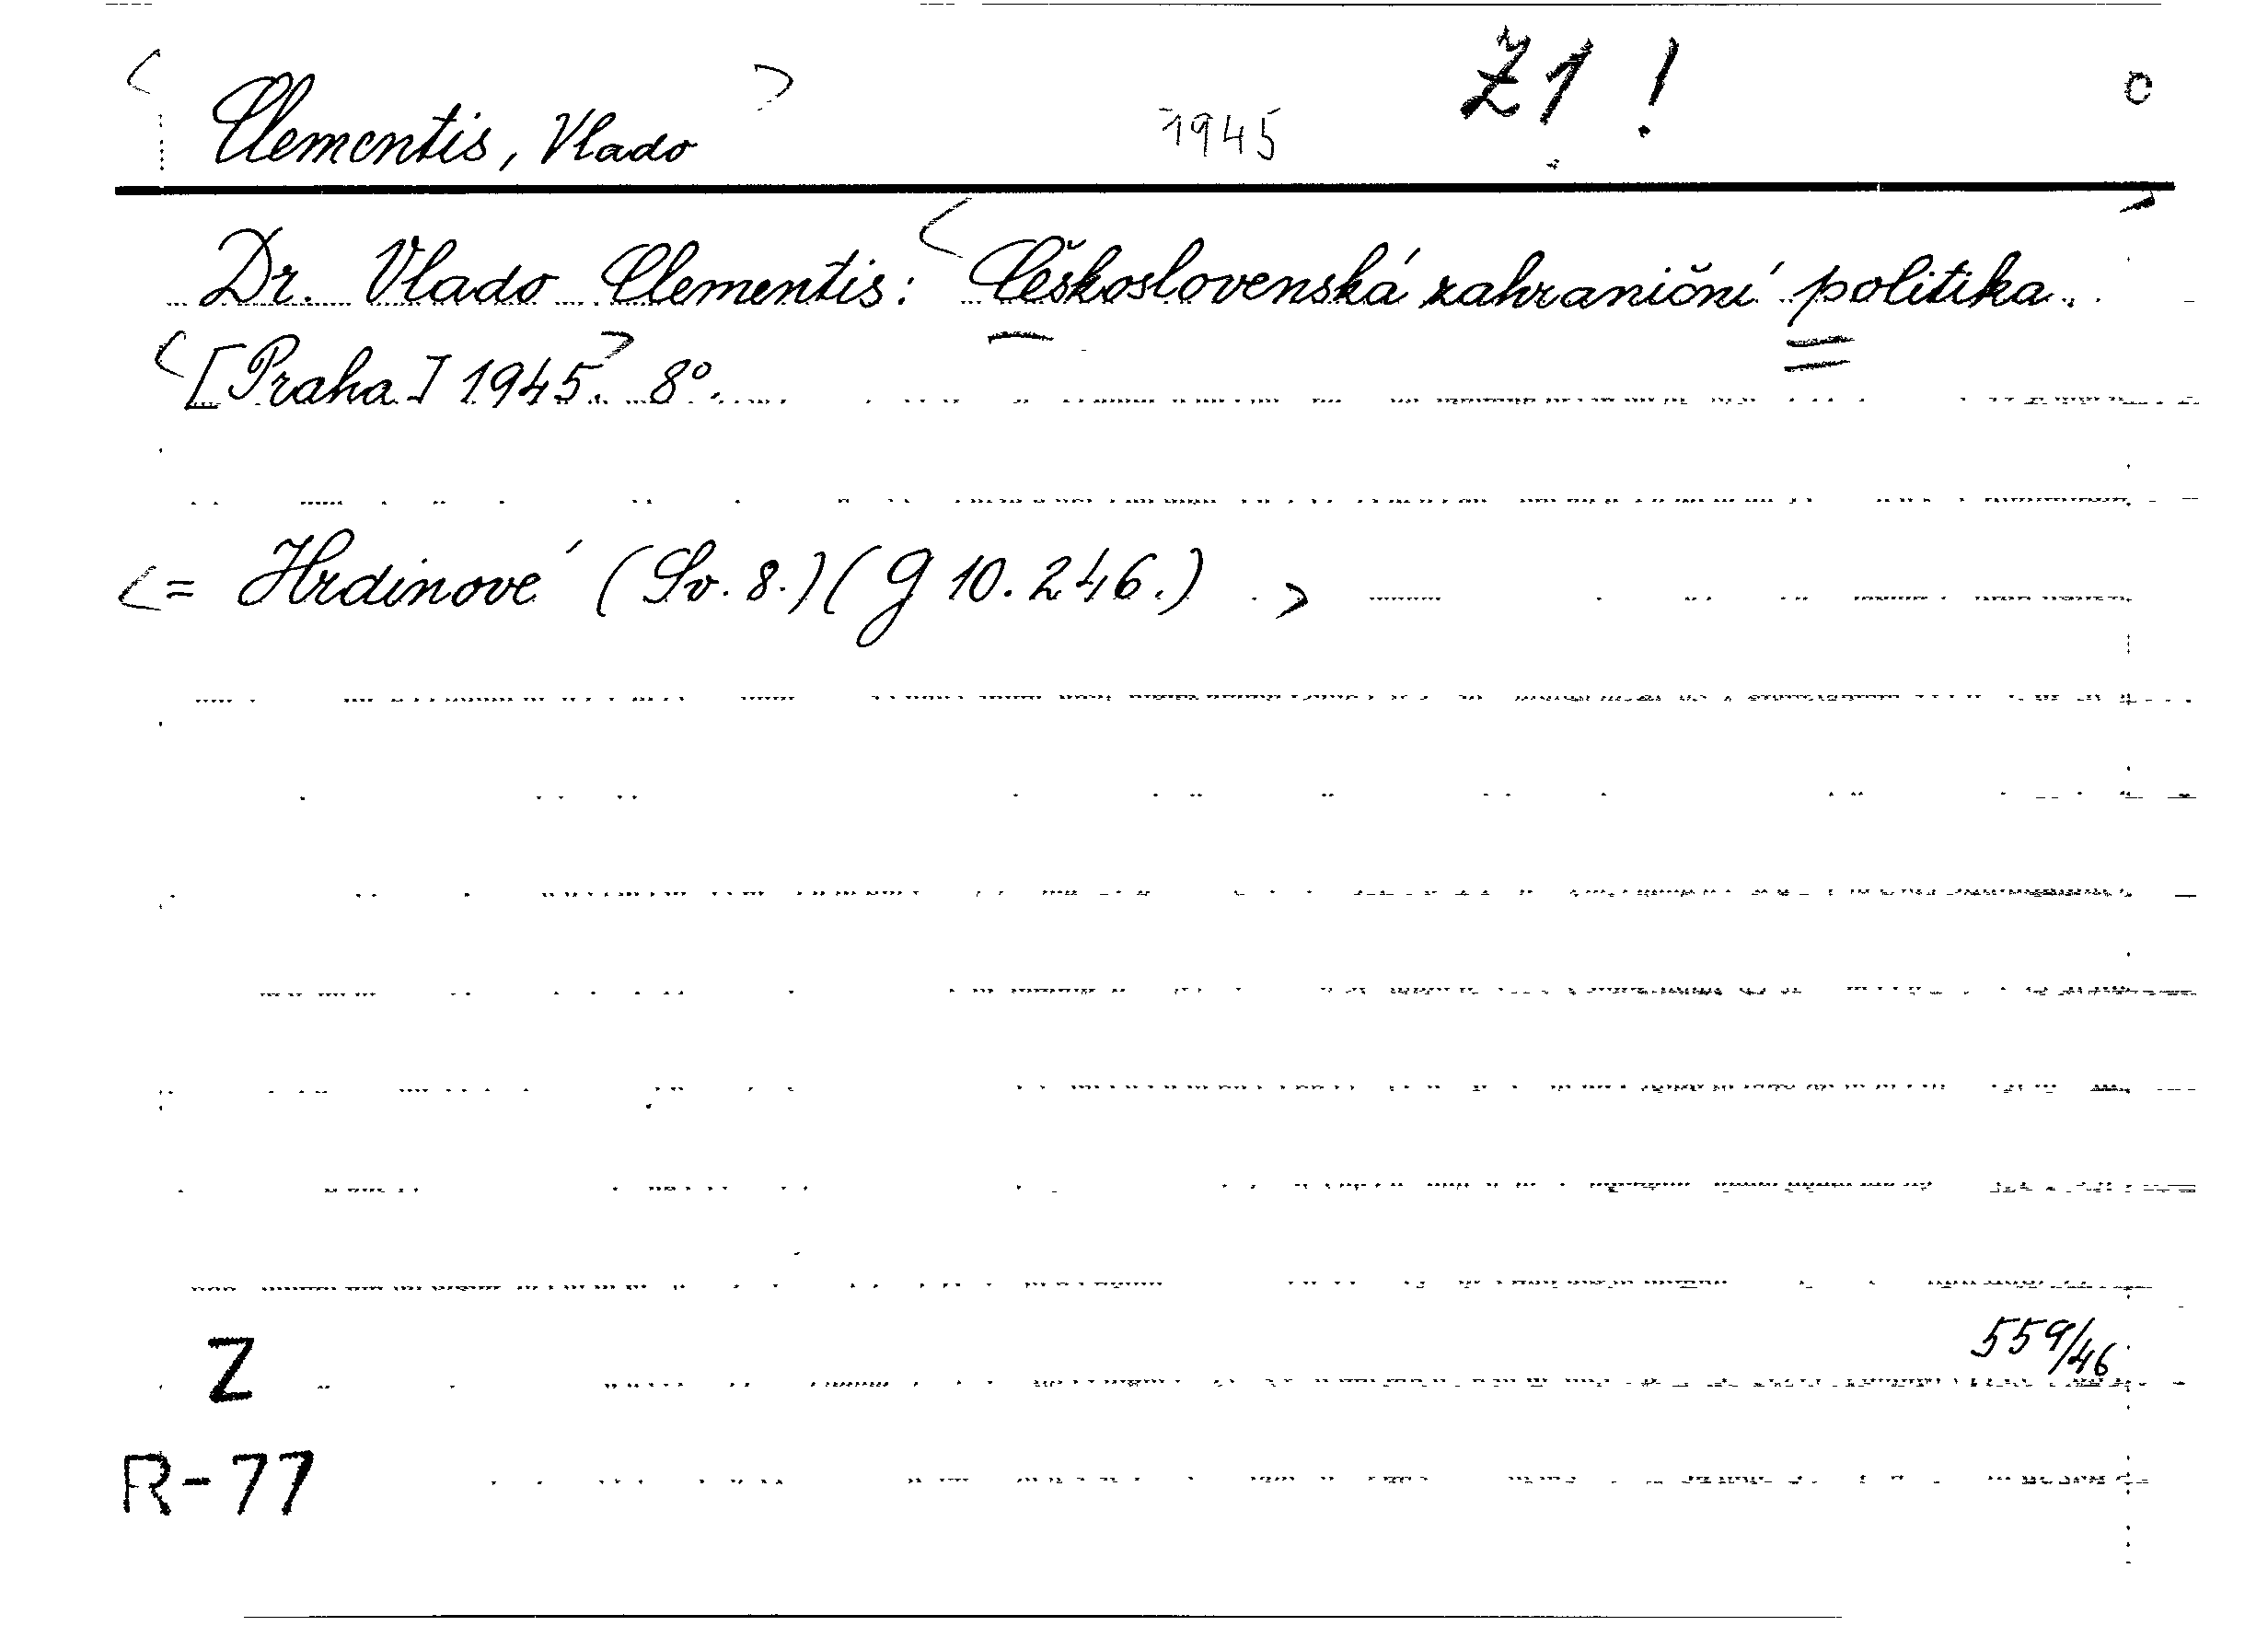 Clementis, Vlado 1945 Z1!
Dr. Vlado Clementis: Československá zahraniční politika.
[Praha] 1945. 8°.
= Hrdinové (Sv. 8.) (G 10.246.)
559/46
Z
R-77